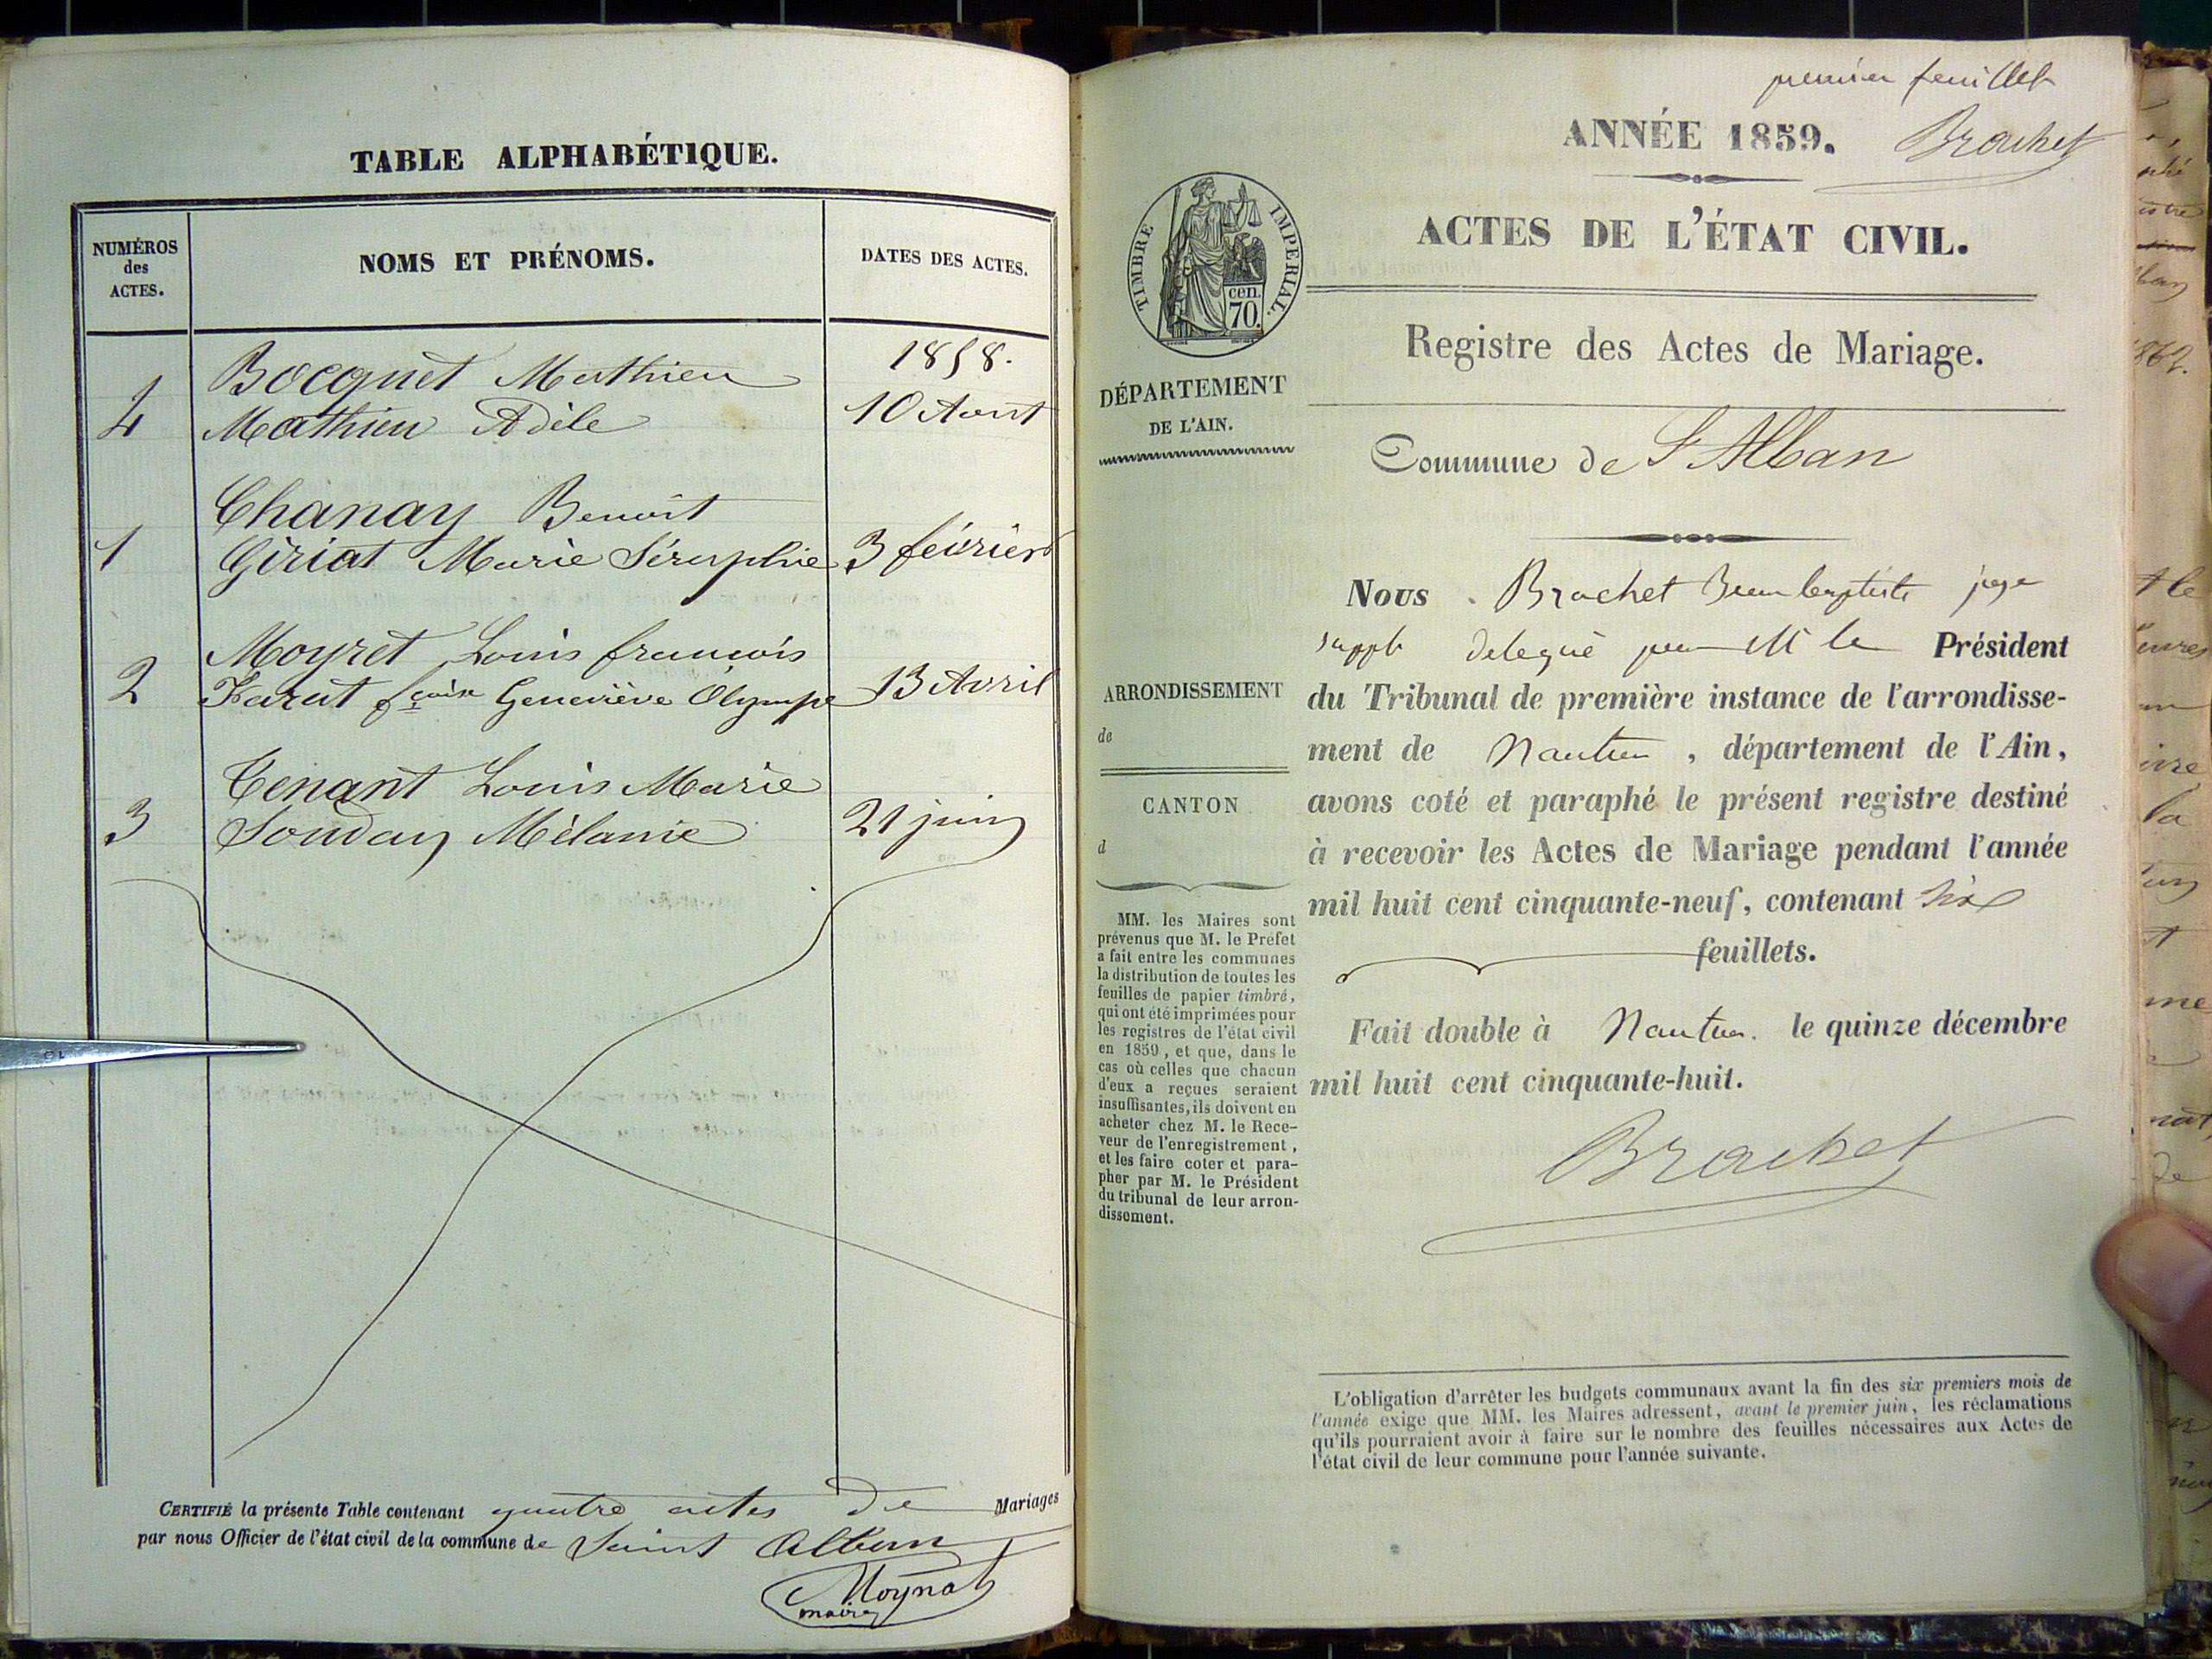 TABLE ALPHABÉTIQUE.
NUMÉROS des ACTES.
NOMS ET PRÉNOMS.
DATES DES ACTES.
1858.
Bocquet Mathieu
4 Mathieu Adèle 10 Aout
Chanay Benoit
1 Giriat Marie Séraphie 3 février
Moyret Louis françois
2 fçoise Geneviève Olympe 13 Avril
Tenant Louis Marie
3 Souday Mélanie 21 juin
CERTIFIÉ la présente Table contenant quatre actes de Mariages
par nous Officier de l'état civil de la commune de Saint Alban
Moynat
maire
premier feuillet
ANNÉE 1859. Brachet
TIMBRE IMPERIAL.
cen.
70.
ACTES DE L'ÉTAT CIVIL.
Registre des Actes de Mariage.
DÉPARTEMENT
DE L'AIN.
Commune de St Alban
ARRONDISSEMENT
de
CANTON
d
MM. les Maires sont
prévenus que M. le Préfet
a fait entre les communes
la distribution de toutes les
feuilles de papier timbré,
qui ont été imprimées pour
les registres de l'état civil
en 1859, et que, dans le
cas où celles que chacun
d'eux a reçues seraient
insuffisantes, ils doivent en
acheter chez M. le Rece-
veur de l'enregistrement,
et les faire coter et para-
pher par M. le Président
du tribunal de leur arron-
dissement.
Nous Brachet Jean baptiste juge
suppt delegué par Mr le Président
du Tribunal de première instance de l'arrondisse-
ment de Nantua, département de l'Ain,
avons coté et paraphé le présent registre destiné
à recevoir les Actes de Mariage pendant l'année
mil huit cent cinquante-neuf, contenant six
feuillets.
Fait double à Nantua. le quinze décembre
mil huit cent cinquante-huit.
Brachet
L'obligation d'arrêter les budgets communaux avant la fin des six premiers mois de
l'année exige que MM. les Maires adressent, avant le premier juin, les réclamations
qu'ils pourraient avoir à faire sur le nombre des feuilles nécessaires aux Actes de
l'état civil de leur commune pour l'année suivante.